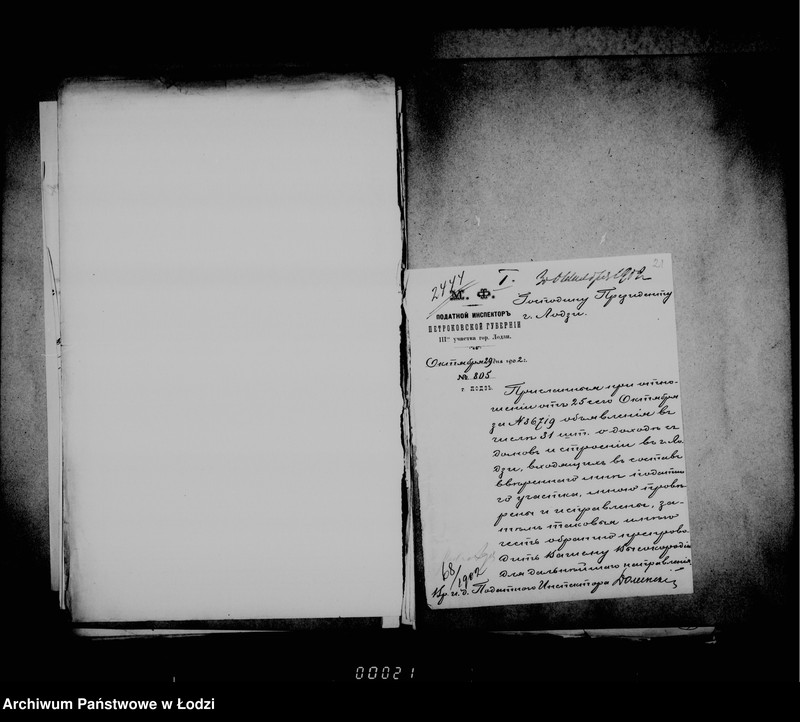 21
2444 Т. 30 Октября 1902
М. Ф.
Господину Президенту
г. Лодзи.
ПОДАТНОЙ ИНСПЕКТОРЪ
ПЕТРОКОВСКОЙ ГУБЕРНІИ
III го участка гор. Лодзи.
Октября 29 дня 1902 г.
№ 805
г. ЛОДЗЬ.
Присланныя при отно-
шеніи отъ 25 сего Октября
за № 36719 объявленія въ
числѣ 31 шт. о доходѣ съ
домовъ и строеній въ г. Ло-
дзи, входящихъ въ составъ
ввѣреннаго мнѣ податна-
го участка, мною провѣ-
рены и исправлены, за-
тѣмъ таковыя имѣю
честь обратно препрово-
дить Вашему Высокородію
для дальнѣйшаго направленія.
68/1902
Вр. и. д. Податного Инспектора
00021
Archiwum Państwowe w Łodzi